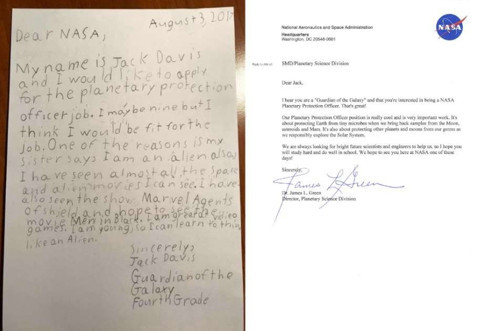 August 3, 201
Dear NASA,
My name is Jack Davis
and I would like to apply
for the planetary protection
officer job. I may be nine but I
think I would be fit for the
job. One of the reasons is my
sister says I am an alien also
I have seen almost all the space
and alien movies I can see. I have
also seen the show Marvel Agents
of Shield and hope to see the
movie Men in Black. I am great at video
games. I am young, so I can learn to think
like an Alien.
Sincerely,
Jack Davis
Guardian of the
Galaxy
Fourth Grade
National Aeronautics and Space Administration
Headquarters
Washington, DC 20546-0001
NASA
Reply to Attn of:
SMD/Planetary Science Division
Dear Jack,
I hear you are a "Guardian of the Galaxy" and that you're interested in being a NASA
Planetary Protection Officer. That's great!
Our Planetary Protection Officer position is really cool and is very important work. It's
about protecting Earth from tiny microbes when we bring back samples from the Moon,
asteroids and Mars. It's also about protecting other planets and moons from our germs as
we responsibly explore the Solar System.
We are always looking for bright future scientists and engineers to help us, so I hope you
will study hard and do well in school. We hope to see you here at NASA one of these
days!
Sincerely,
James L Green
Dr. James L. Green
Director, Planetary Science Division